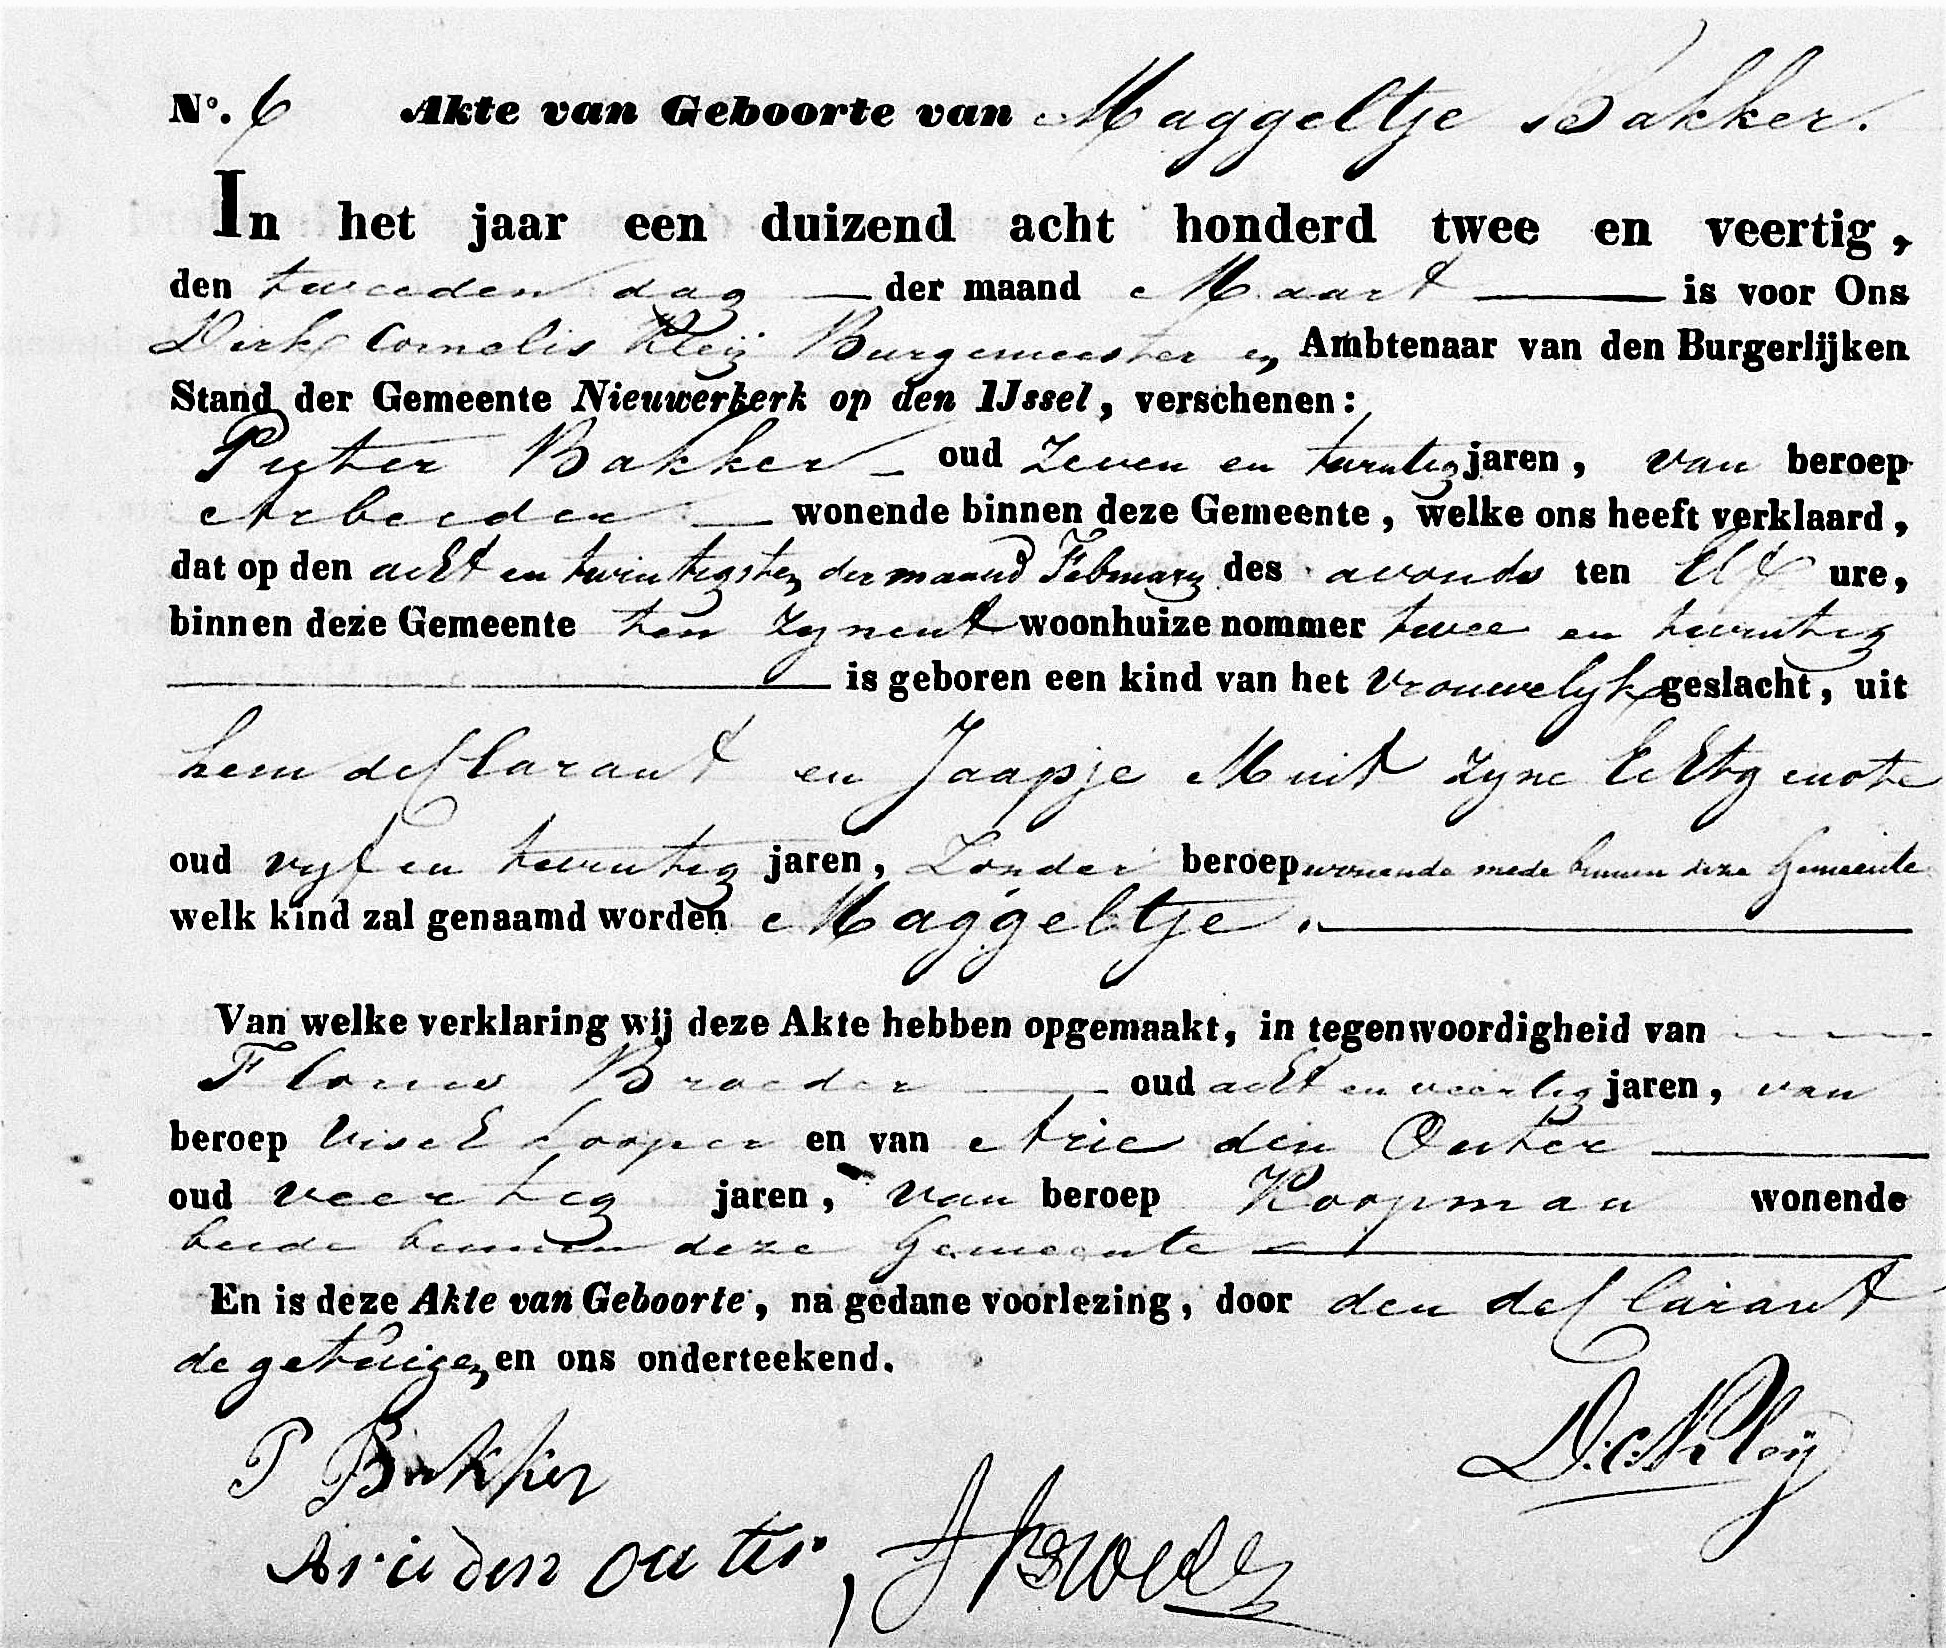 N°. 6 Akte van Geboorte van Maggeltje Bakker.
In het jaar een duizend acht honderd twee en veertig,
den tweeden dag der maand Maart is voor Ons
Dirk Cornelis Kleij Burgemeester en Ambtenaar van den Burgerlijken
Stand der Gemeente Nieuwerkerk op den IJssel, verschenen:
Pieter Bakker oud Zeven en twintig jaren, van beroep
Arbeider wonende binnen deze Gemeente, welke ons heeft verklaard,
dat op den acht en twintigsten der maand February des avonds ten Elf ure,
binnen deze Gemeente ten zynent woonhuize nommer twee en twintig
is geboren een kind van het vrouwelyk geslacht, uit
hem declarant en Jaapje Muit zyne Echtgenote
oud vyf en twintig jaren, Zonder beroep wonende mede binnen deze Gemeente
welk kind zal genaamd worden Maggeltje.
Van welke verklaring wij deze Akte hebben opgemaakt, in tegenwoordigheid van
Floruis Broeder oud acht en veertig jaren, van
beroep Visch kooper en van Arie den Outer
oud veertig jaren, van beroep Koopman wonende
beide binnen deze Gemeente
En is deze Akte van Geboorte, na gedane voorlezing, door den declarant
de getuigen en ons onderteekend.
P Bakker
D: C: Kleij
Arie den outer, F Broeder